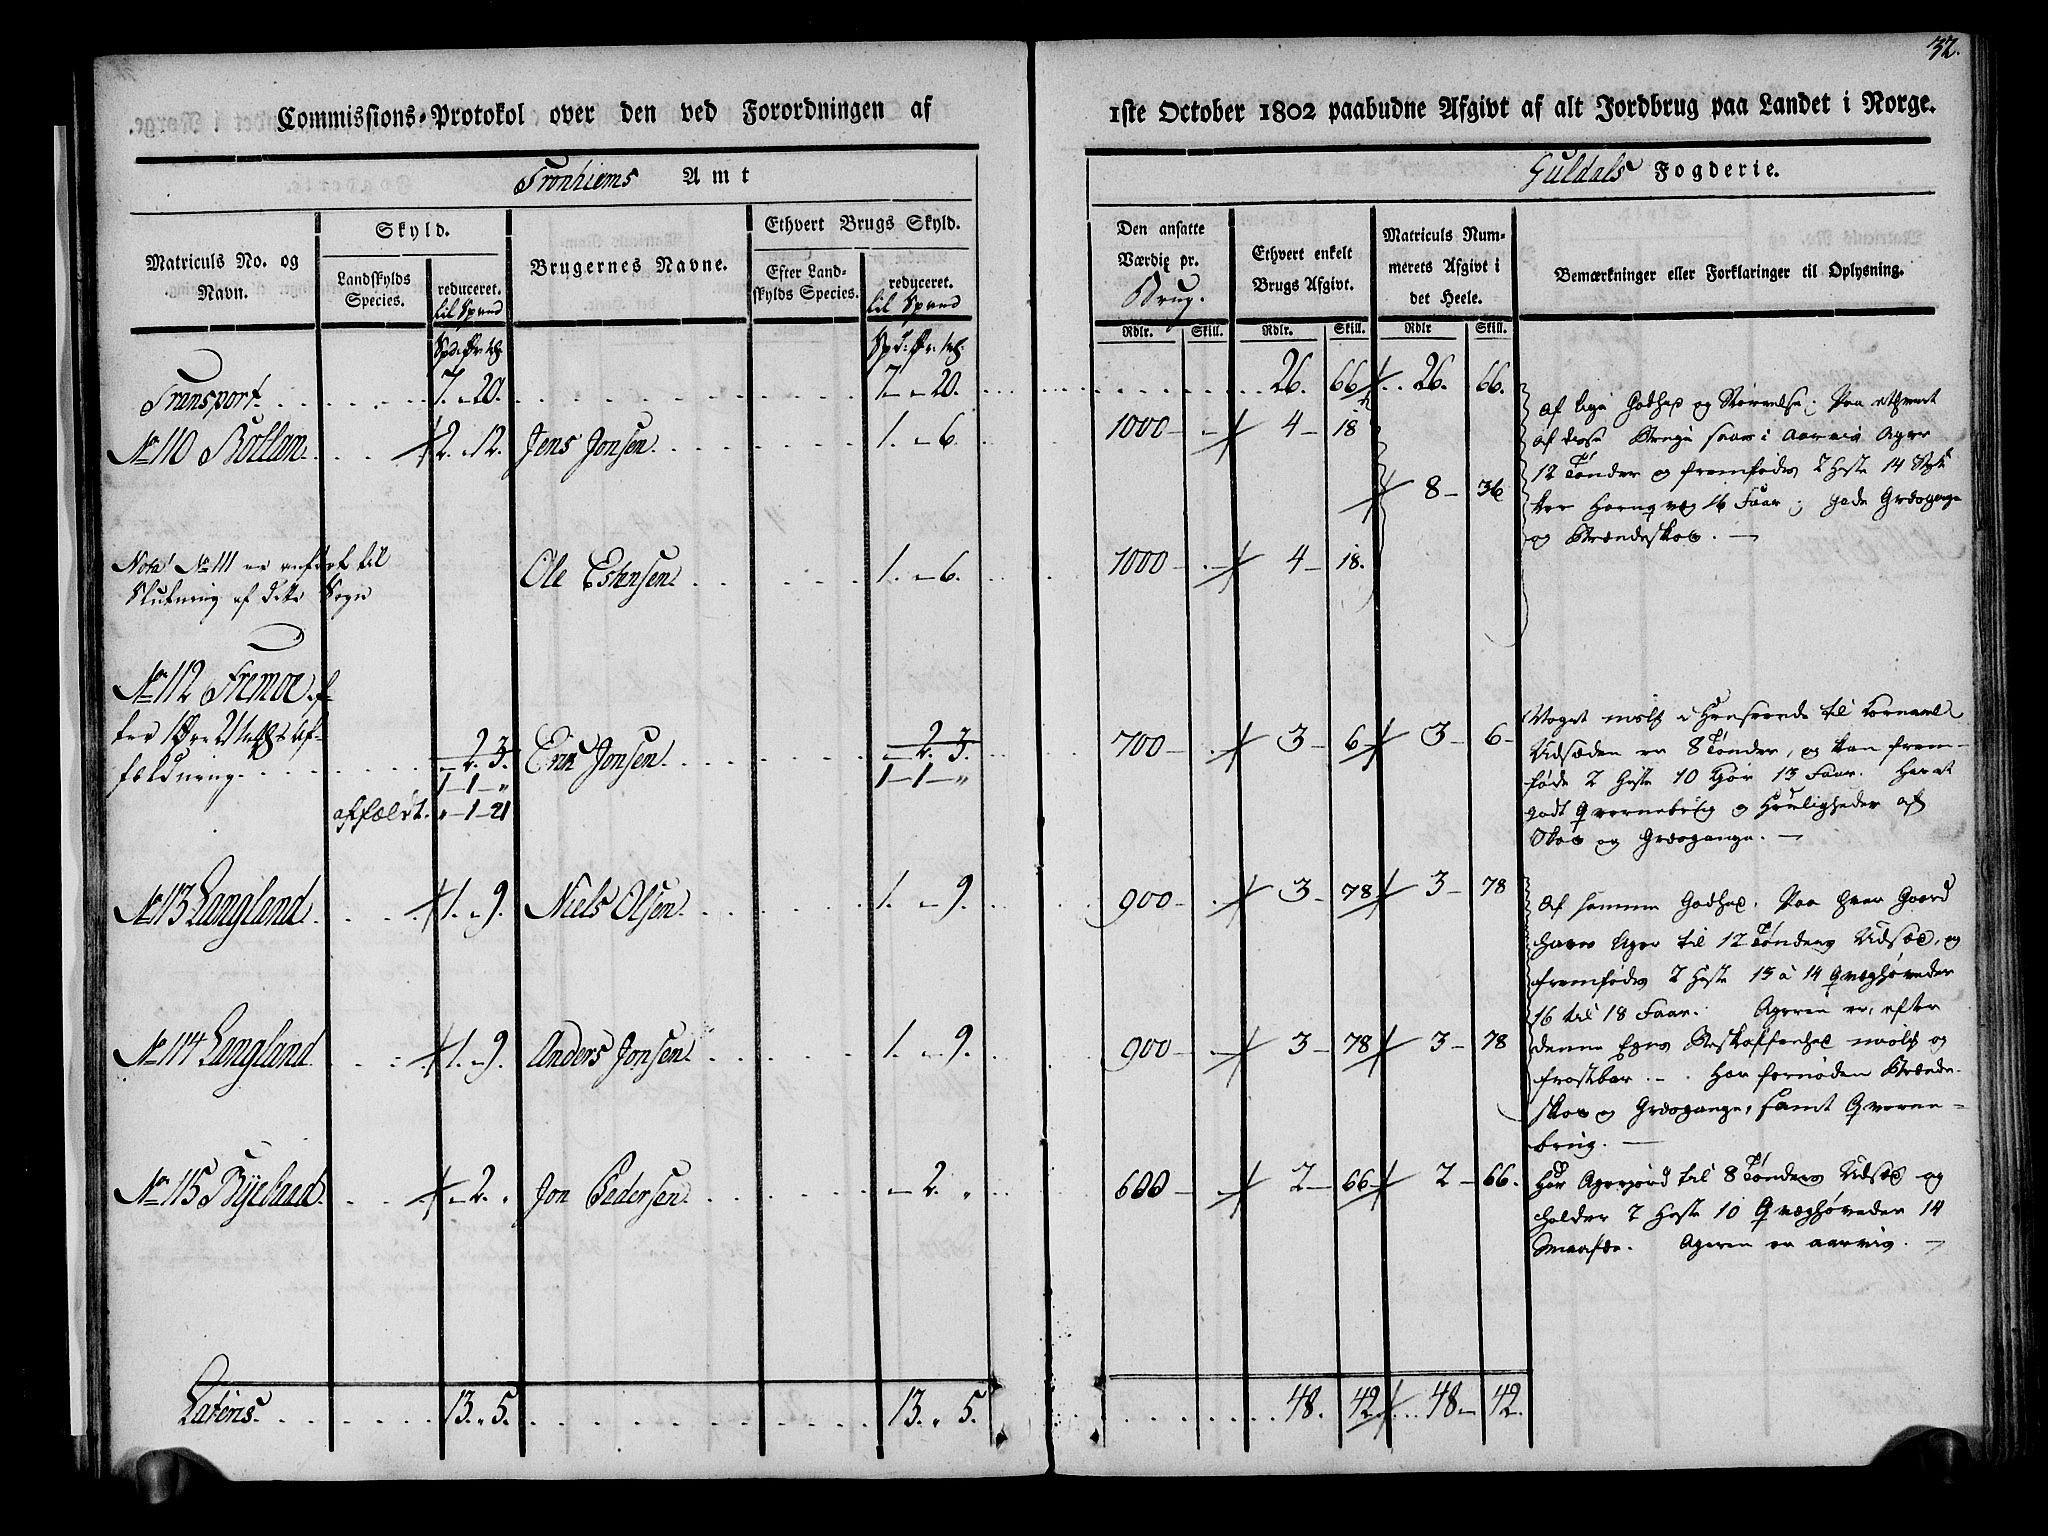 32.
Commissions-Protokol over den ved Forordningen af 1ste October 1802 paabudne Afgivt af alt Jordbrug paa Landet i Norge.
Tronhiems Amt
Guldals Fogderie.
Matriculs No. og Navn.
Skyld.
Landskylds Species.
reduceret. til Spand
Brugernes Navne.
Ethvert Brugs Skyld.
Efter Landskylds Species.
reduceret. til Spand
Den ansatte Værdie pr. Brug.
Ethvert enkelt Brugs Afgivt.
Matriculs Nummerets Afgivt i det Heele.
Bemærkninger eller Forklaringer til Oplysning.
Rdlr. Skill. Rdlr. Skill. Rdlr Skill.
Transport 7. - 20. 7 - 20. 26. 66 26. 66.
No 110 Bollan 2. 12. Jens Jonsen 1. - 6. 1000 - 4 - 18
8 - 36
af lige Godhed og Størrelse; Paa ethvert
af disse Brug saaes i aarviis Ager
12 Tønder og fremfødes 2 Heste 14 Styk
ker Hornqvæg 16 Faar; gode Græsgange
og Brændeskov. -
Nota No 111 er anført til
Slutning af dette Sogn
Ole Estensen 1. - 6. 1000 - 4 - 18.
No 112 Fremoe ef-
ter 1 Øre 21 Af-
fældning - 2. 3. Erik Jonsen - 2. 3. 700 - 3 - 6 3 - 6 -
1 - 1 - " 1 - 1 - "
affældt. " - 1 - 21
Noget i Henseende til Kornavl
Udsæden er 8 Tønder, og kan frem-
føde 2 Heste 10 Kiør 13 Faar. Har et
godt Qvernebrug og Herligheder af
Skov og Græsgange. -
No 113 Langland 1. - 9. Niels Olsen 1. - 9. 900 - 3 - 78 3 - 78
Af samme Godhed. Paa hver Gaard
haves Ager til 12 Tønders Udsæd, og
fremfødes 2 Heste 13 à 14 Qvæghøveder
16 til 18 Faar. Ageren er, efter
denne Egns Beskaffenhed og
frostbar. - Har fornøden Brænde-
skov og Græsgange, samt Qverne-
brug. -
No 114 Langland 1. - 9. Anders Jonsen 1. - 9. 900 - 3 - 78 3 - 78
No 115 Byeland - 2. " Jon Pedersen - 2. " 600 - 2 - 66 2 - 66.
Har Agerjord til 8 Tønders Udsæd og
holder 2 Heste 10 Qvæghøveder 14
Smaafæe. Ageren er aarviis. -
Lateris 13. " 5. 13. " 5. 48. 42 48 - 42.